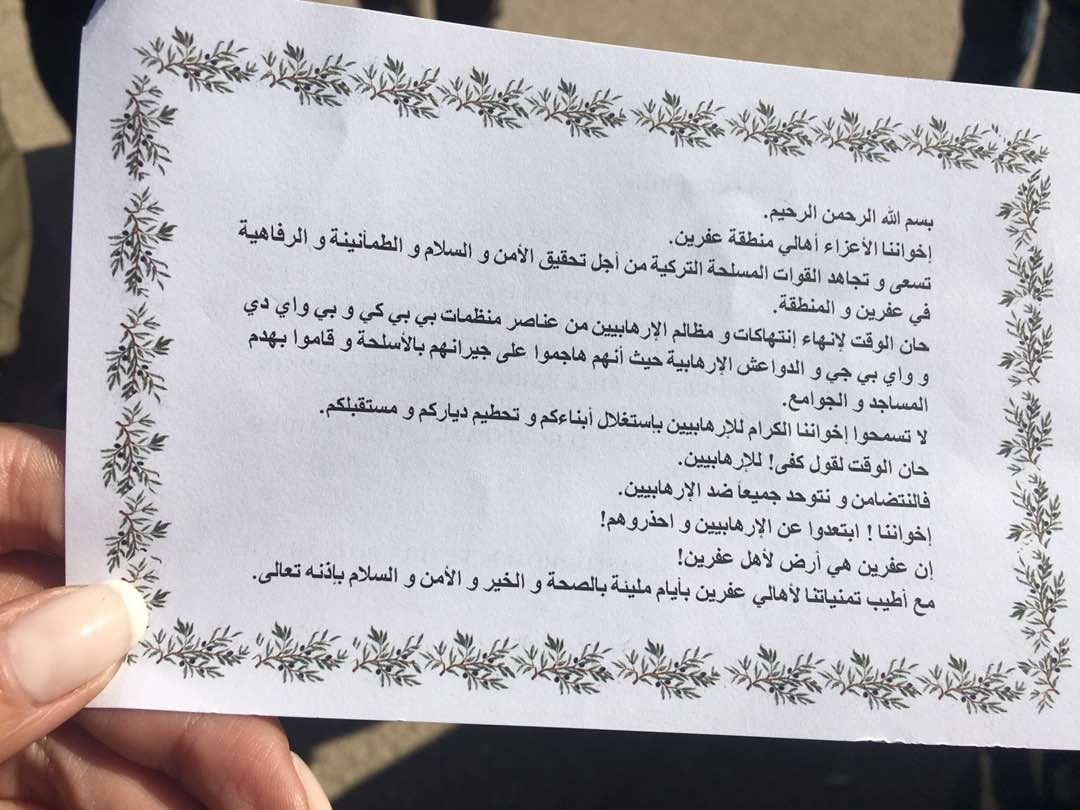 بسم الله الرحمن الرحيم.
إخواننا الأعزاء أهالي منطقة عفرين.
تسعى و تجاهد القوات المسلحة التركية من أجل تحقيق الأمن و السلام و الطمأنينة و الرفاهية
في عفرين و المنطقة.
حان الوقت لإنهاء إنتهاكات و مظالم الإرهابيين من عناصر منظمات بي بي كي و بي واي دي
و واي بي جي و الدواعش الإرهابية حيث أنهم هاجموا على جيرانهم بالأسلحة و قاموا بهدم
المساجد و الجوامع.
لا تسمحوا إخواننا الكرام للإرهابيين باستغلال أبناءكم و تحطيم دياركم و مستقبلكم.
حان الوقت لقول كفى! للإرهابيين.
فالنتضامن و نتوحد جميعاً ضد الإرهابيين.
إخواننا ! ابتعدوا عن الإرهابيين و احذروهم!
إن عفرين هي أرض لأهل عفرين!
مع أطيب تمنياتنا لأهالي عفرين بأيام مليئة بالصحة و الخير و الأمن و السلام بإذنه تعالى.